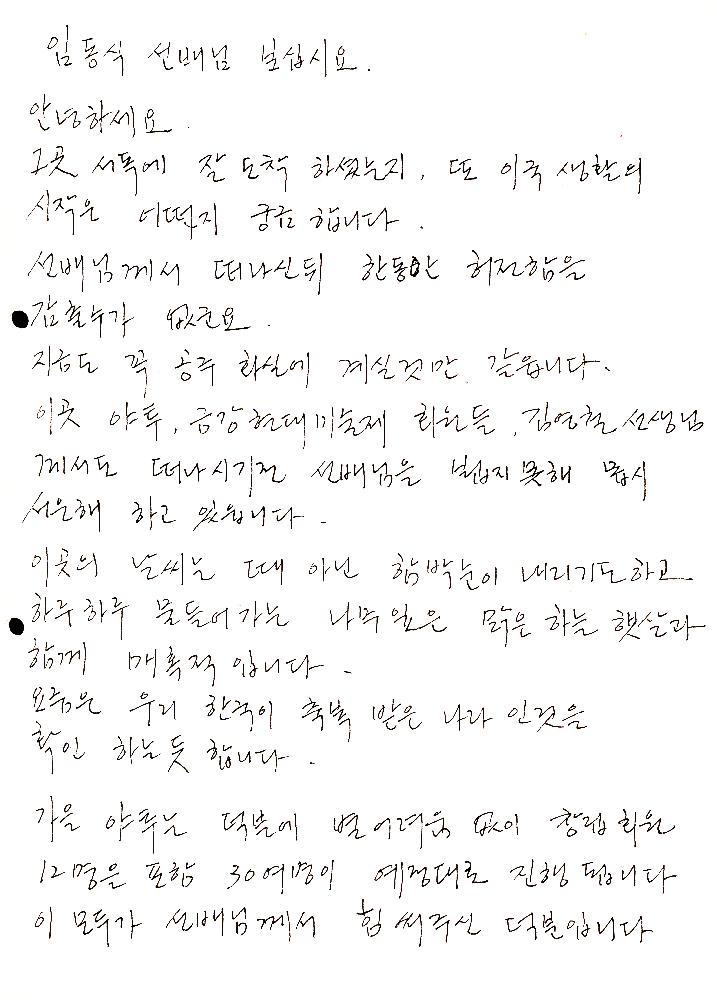 임동식 선배님 보십시요.
안녕하세요.
그곳 서독에 잘 도착 하셨는지, 또 이국 생활의
시작은 어떤지 궁금 합니다.
선배님께서 떠나신뒤 한동안 허전함을
감출수가 없군요.
지금도 꼭 공주 화실에 계실것만 같읍니다.
이곳 야투, 금강현대미술제 회원들, 김영철 선생님
께서도 떠나시기전 선배님을 뵙지못해 몹시
서운해 하고 있읍니다.
이곳의 날씨는 때 아닌 함박눈이 내리기도하고
하루하루 물들어가는 나무잎은 맑은 하늘 햇살과
함께 매혹적 입니다.
요즘은 우리 한국이 축복 받은 나라 인것을
확인 하는듯 합니다.
가을 야투는 덕분에 별 어려움 없이 창립회원
12명을 포함 30여명이 예정대로 진행 됩니다
이 모두가 선배님께서 힘 써주신 덕분입니다